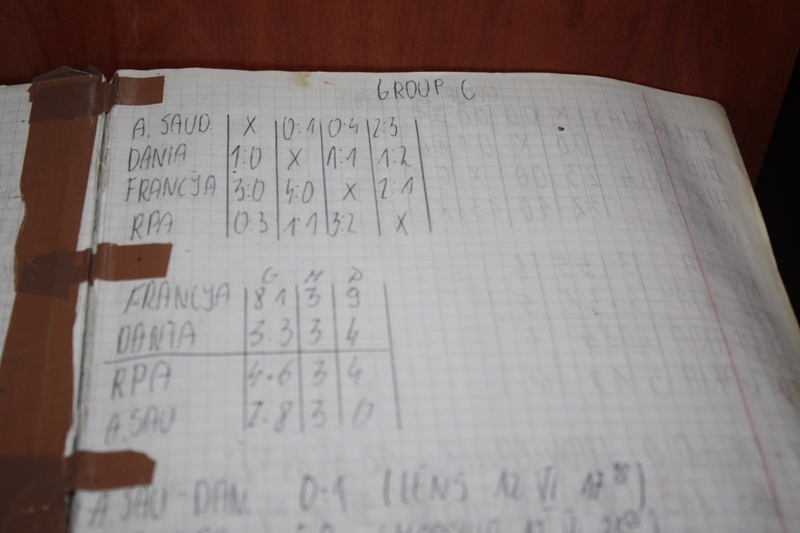 GROUP C
A. SAUD. X 0:1 0:4 2:3
DANIA 1:0 X 1:1 1:2
FRANCJA 3:0 4:0 X 2:1
RPA 0:3 1:1 3:2 X
G M P
FRANCJA 8 1 3 9
DANIA 3:3 3 4
RPA 4:6 3 4
A. SAU 2:8 3 0
A. SAU-DAN. 0:1 (LENS 12 VI 17